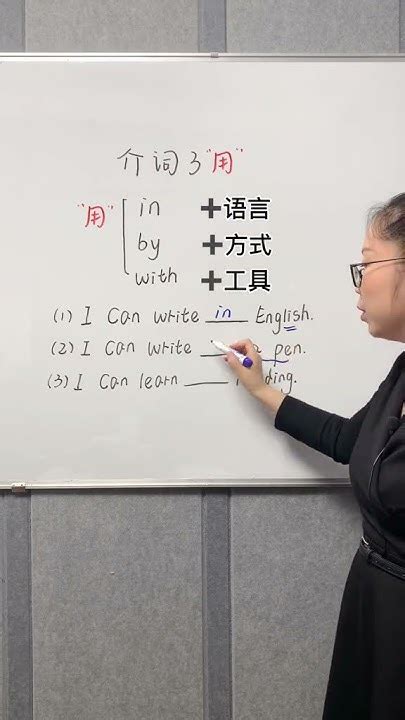 介词 3 "用"
"用" in ➕语言
by ➕方式
with ➕工具
(1) I Can write in English.
(2) I Can write ___ a pen.
(3) I Can learn ___